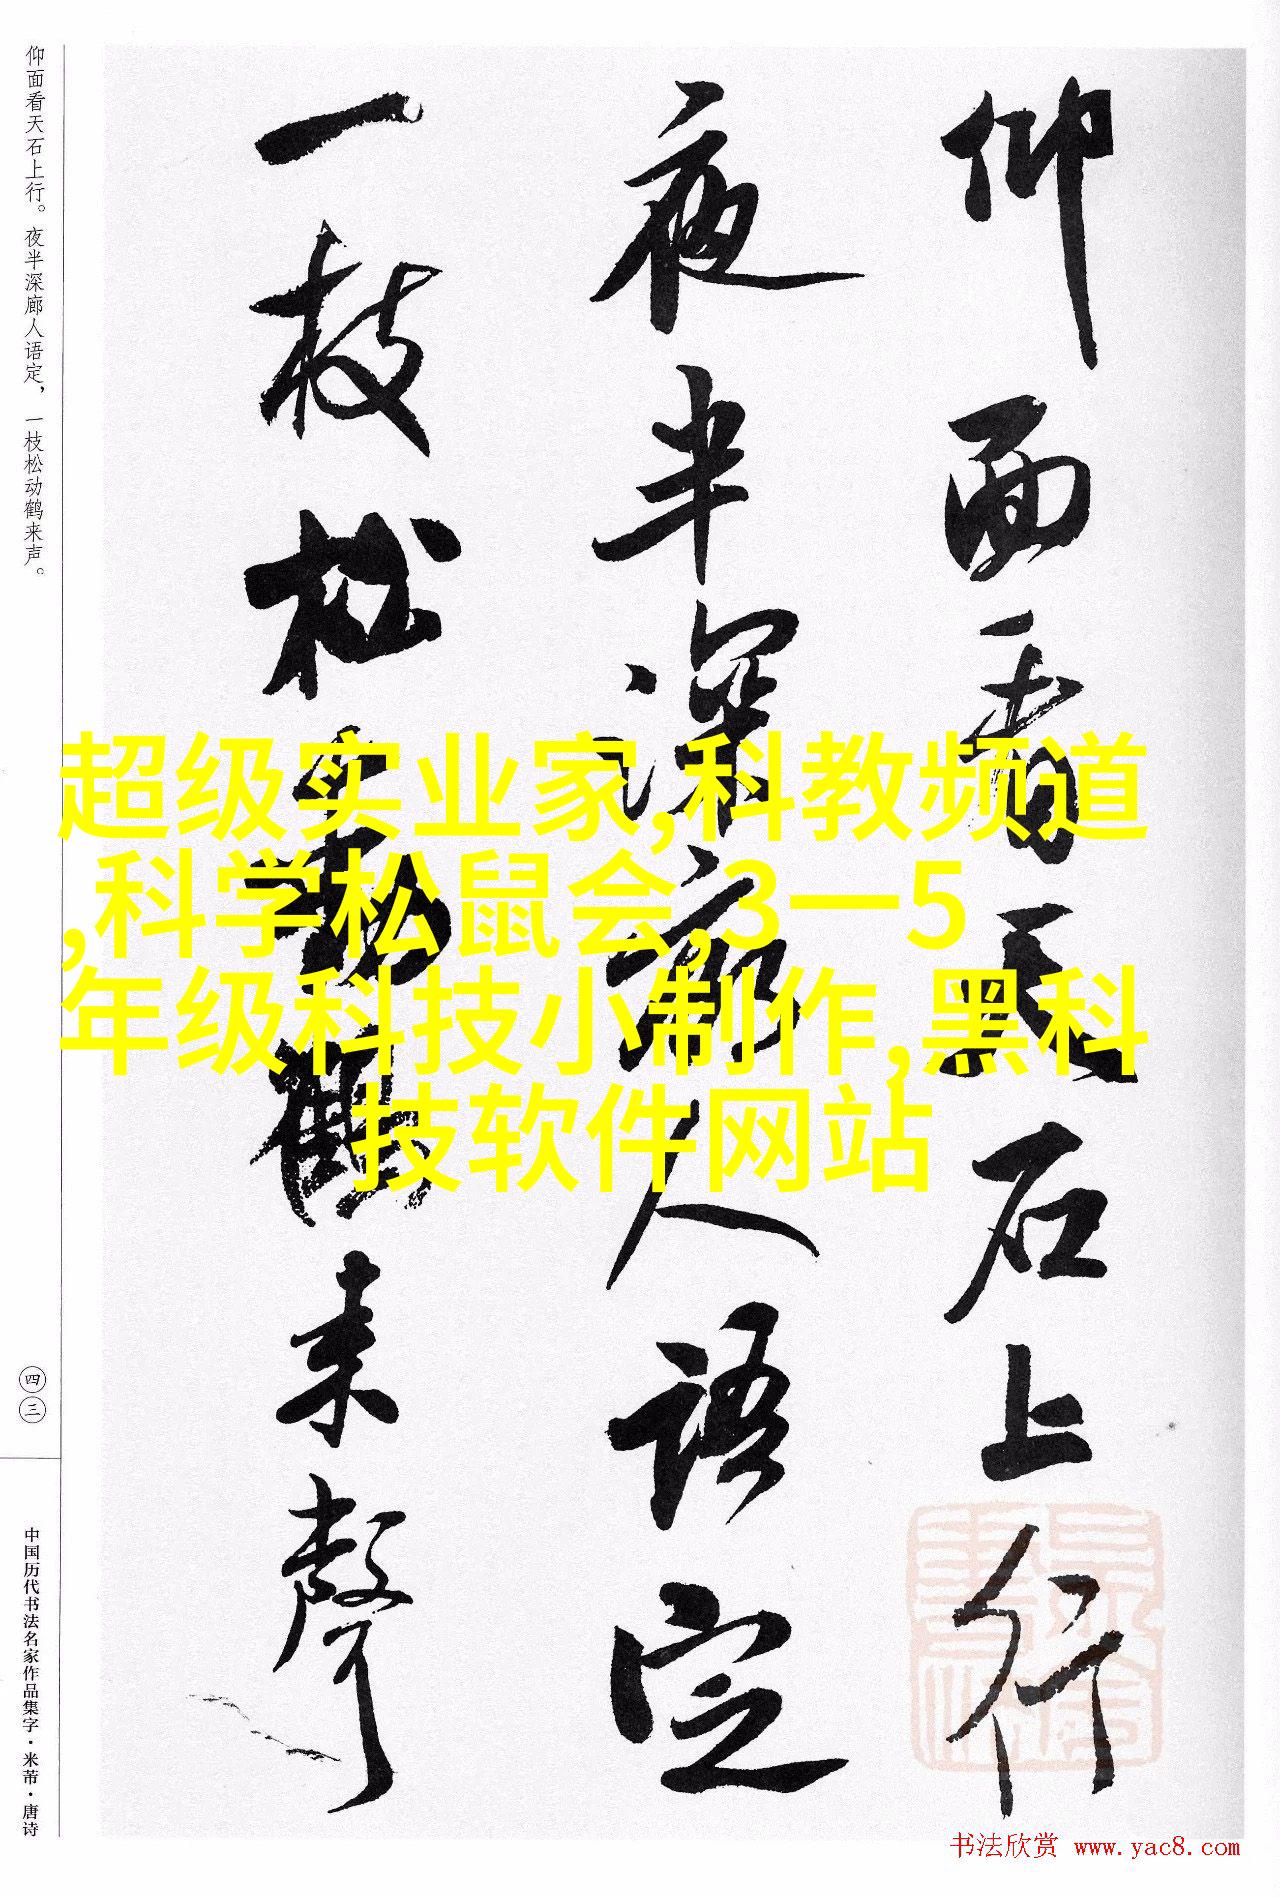 仰面看天石上行
夜半深廊人语定
一枝松动鹤来声
仰面看天石上行。夜半深廊人语定，一枝松动鹤来声。
四三
中国历代书法名家作品集字·米芾·唐诗
超级实业家,科教频道
,科学松鼠会,3一5
年级科技小制作,黑科
技软件网站
书法欣赏 www.yac8.com